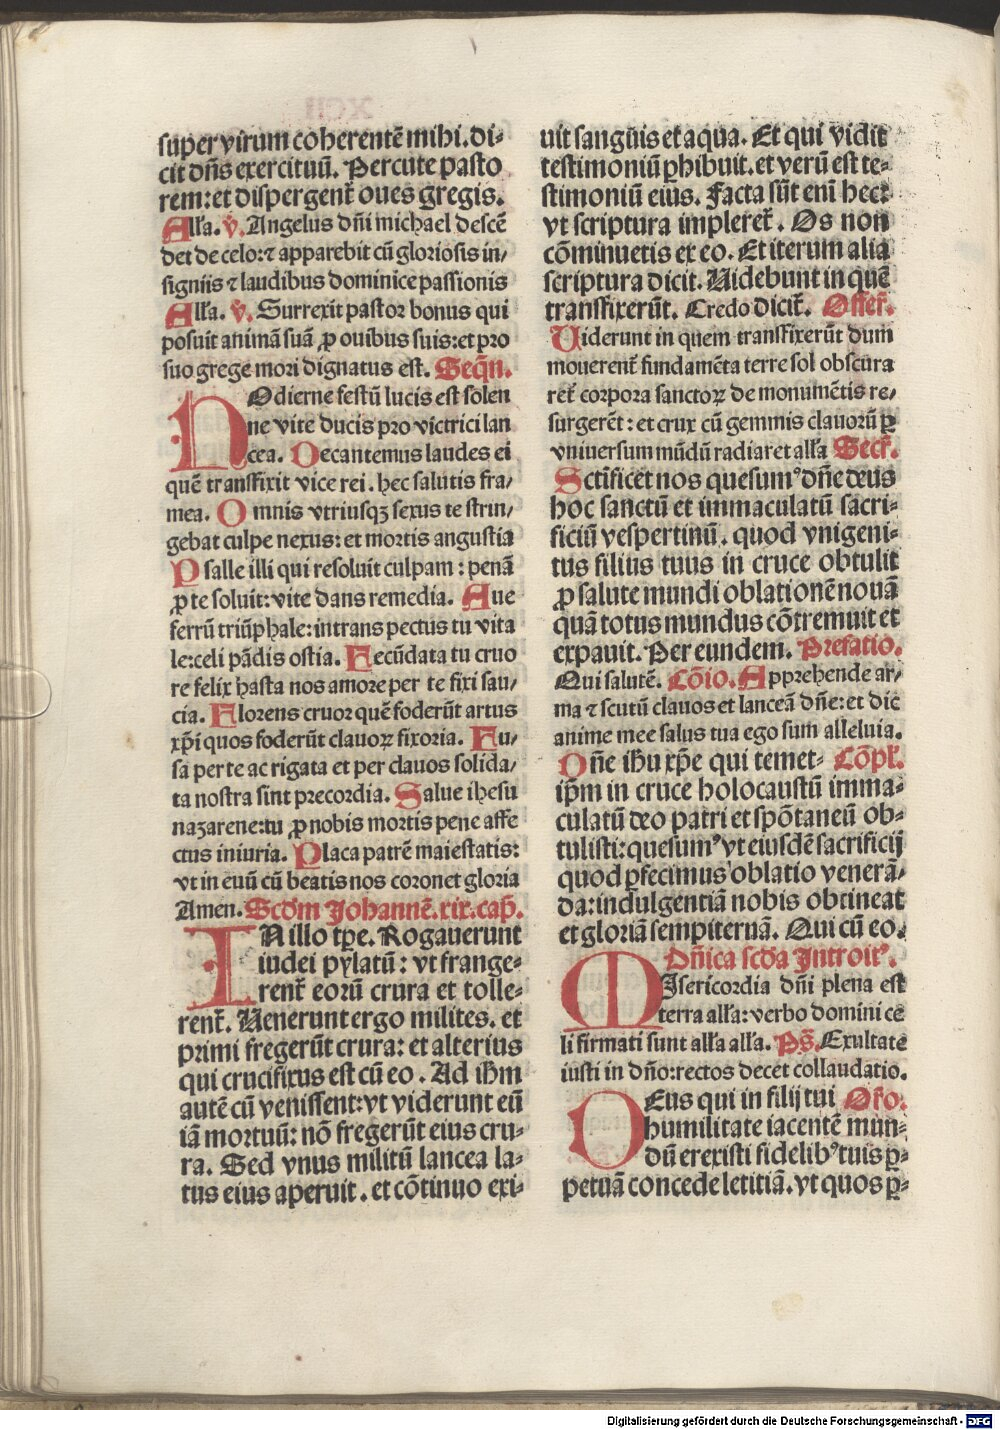 super virum coherentē mihi. di-
cit dn̄s exercituū. Percute pasto
rem: et dispergent᷑ oues gregis.
Alla̅. ꝟ. Angelus dn̄i michael descē
det de celo: ⁊ apparebit cū gloriosis in/
signiis ⁊ laudibus dominice passionis
Alla̅. ꝟ. Surrexit pastor bonus qui
posuit animā suā ꝓ ouibus suis: et pro
suo grege mori dignatus est. Seqn̄.
HOdierne festū lucis est solen
ne vite ducis pro victrici lan
cea. Decantemus laudes ei
quē transfixit vice rei. hec salutis fra/
mea. Omnis vtriusqꝫ sexus te strin/
gebat culpe nexus: et mortis angustia
Psalle illi qui resoluit culpam: penā
ꝓ te soluit: vite dans remedia. Aue
ferrū triūphale: intrans pectus tu vita
le: celi pādis ostia. Fecūdata tu cruo
re felix hasta nos amore per te fixi sau/
cia. Florens cruor quē foderūt artus
xp̄i quos foderūt clauoꝝ fixoria. Fu/
sa per te ac rigata et per clauos solida/
ta nostra sint precordia. Salue ihesu
nazarene: tu ꝓ nobis mortis pene affe
ctus iniuria. Placa patrē maiestatis:
vt in euū cū beatis nos coronet gloria
Amen. Scd̄m Johannē. xix. cap̄.
IN illo tp̄e. Rogauerunt
iudei pylatū: vt frange-
rent᷑ eorū crura et tolle-
rent᷑. Uenerunt ergo milites. et
primi fregerūt crura: et alterius
qui crucifixus est cū eo. Ad ih̄m
autē cū venissent: vt viderunt eū
iā mortuū: nō fregerūt eius cru-
ra. Sed vnus militū lancea la-
tus eius aperuit. et cōtinuo exi-
uit sanguis et aqua. Et qui vidit
testimoniū ꝑhibuit. et verū est te-
stimoniū eius. Facta sūt eni̅ hec:
vt scriptura impleret᷑. Os non
cōminuetis ex eo. Et iterum alia
scriptura dicit. Uidebunt in quē
transfixerūt. Credo dicit᷑. Offer᷑.
Uiderunt in quem transfixerūt dum
mouerent᷑ fundamēta terre sol obscura
ret᷑ corpora sanctoꝝ de monumētis re/
surgerēt: et crux cū gemmis clauorū ꝑ
vniuersum mūdū radiaret alla̅ Secr᷑.
Sctificet nos quesumꝰ dn̄e deus
hoc sanctū et immaculatū sacri-
ficiū vespertinū. quod vnigeni-
tus filius tuus in cruce obtulit
ꝓ salute mundi oblationē nouā
quā totus mundus cōtremuit et
expauit. Per eundem. Prefatio.
Qui salutē. Cōio. Apprehende ar/
ma ⁊ scutū clauos et lanceā dn̄e: et dic
anime mee salus tua ego sum alleluia.
Dn̄e ih̄u xp̄e qui temet- Cōpl᷑.
ip̄m in cruce holocaustū imma-
culatū deo patri et spōtaneū ob-
tulisti: quesumꝰ vt eiusdē sacrificij
quod ꝑfecimus oblatio venerā/
da: indulgentiā nobis obtineat
et gloriā sempiternā. Qui cū eo.
Dn̄ica scd̄a Introitꝰ.
MIsericordia dn̄i plena est
terra alla̅: verbo domini ce
li firmati sunt alla̅ alla̅. Ps̄. Exultate
iusti in dn̄o: rectos decet collaudatio.
DEus qui in filij tui Or̄o.
humilitate iacentē mun-
dū erexisti fidelibꝰ tuis ꝑ-
petuā concede letitiā. vt quos ꝑ-
Digitalisierung gefördert durch die Deutsche Forschungsgemeinschaft - DFG